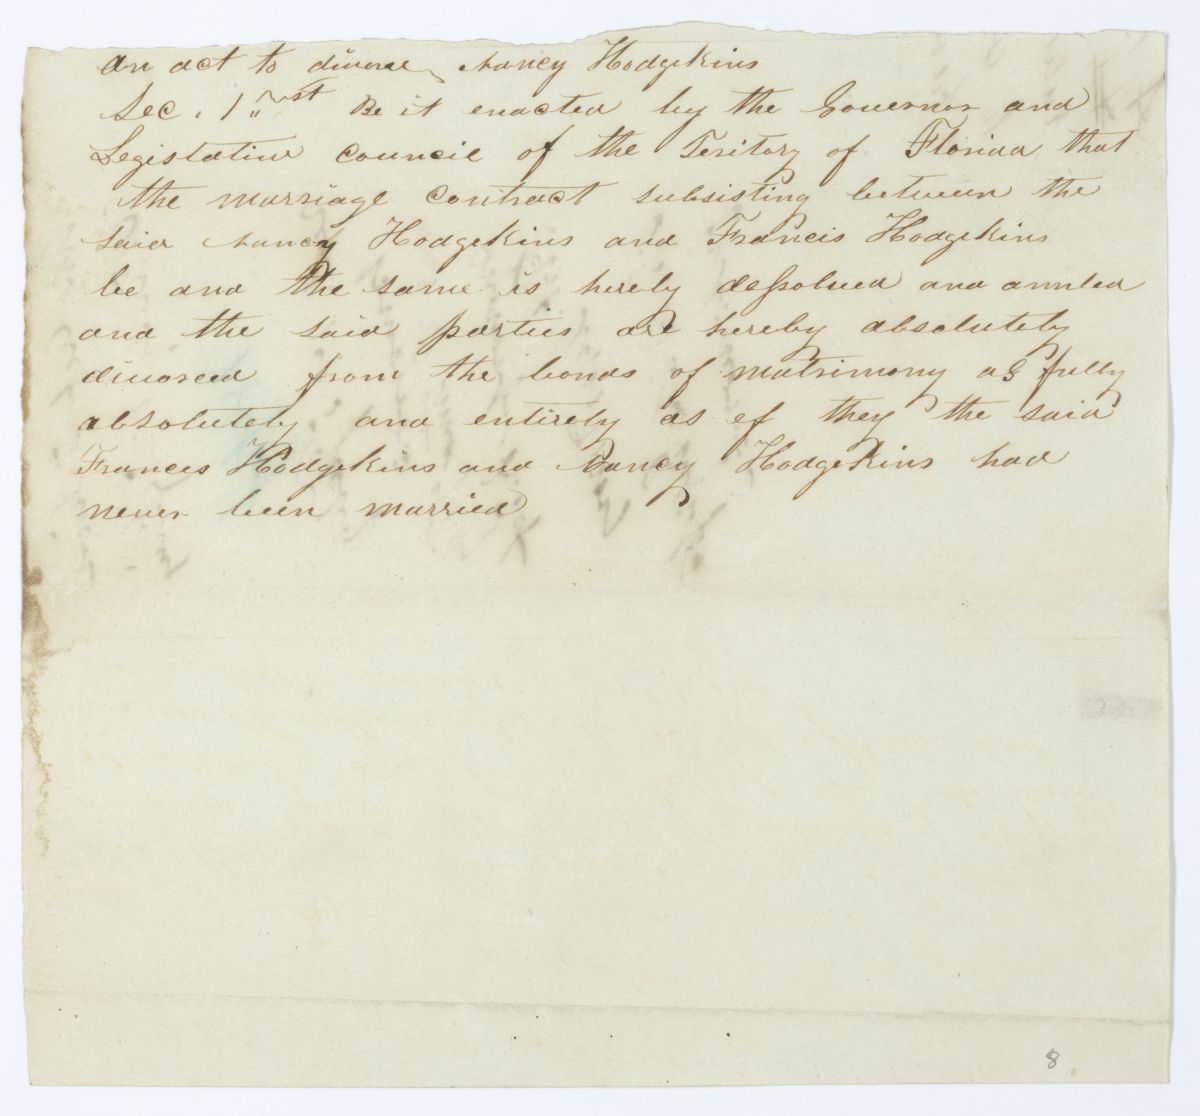 An act to divorce Nancy Hodgekins
Sec. 1st Be it enacted by the Governor and
Legislative council of the Teritory of Florida that
the marriage contract subsisting between the
said Nancy Hodgekins and Francis Hodgekins
be and the same is hereby dessolved and annled
and the said parties are hereby absolutely
divorced from the bonds of matrimony as fully
absolutely and entirely as ef they the said
Francis Hodgekins and Nancy Hodgekins had
never been married
8